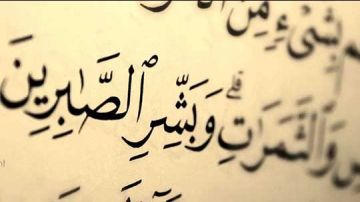 بِشَىْءٍ مِّنَ ٱلْ
وَٱلثَّمَرَٰتِ ۗ وَبَشِّرِ ٱلصَّـٰبِرِينَ